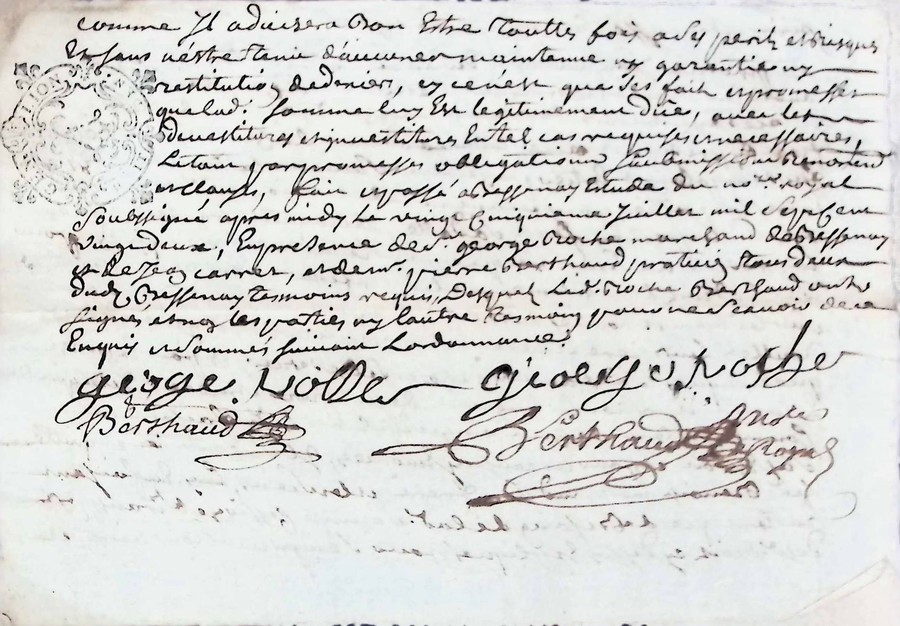 comme Il advisera Bon Estre touttes fois a Ses perilz et risques
Et sans n'estre tenu d'aucune maintenue ny garantie ny
restitution de deniers, sy ce n'est que de ses fait et promesses
que lad. somme luy Est legitimement düe, avec les
devestitures et investitures En tel cas requises et necessaires,
par promesses obligations Soubmissions Renonciaons
et clauses, fait et passé a Bessenay Estude du no.re royal
Soubsigné apres midy le vingt cinquieme Juillet mil Sept Cent
vingt deux, En presence de S.r george Roche marchand de Bessenay
et de Jean carret, et de m.e pierre Berthaud praticien tous deux
dud. Bessenay tesmoins requis, Desquels Led. Roche Berthaud ont
signés et non les parties ny l'autre tesmoin pour ne Scavoir de ce
Enquis et Sommés suivant L'ordonnance.
george Roche george Roche
Berthaud Berthaud no.re
Royal